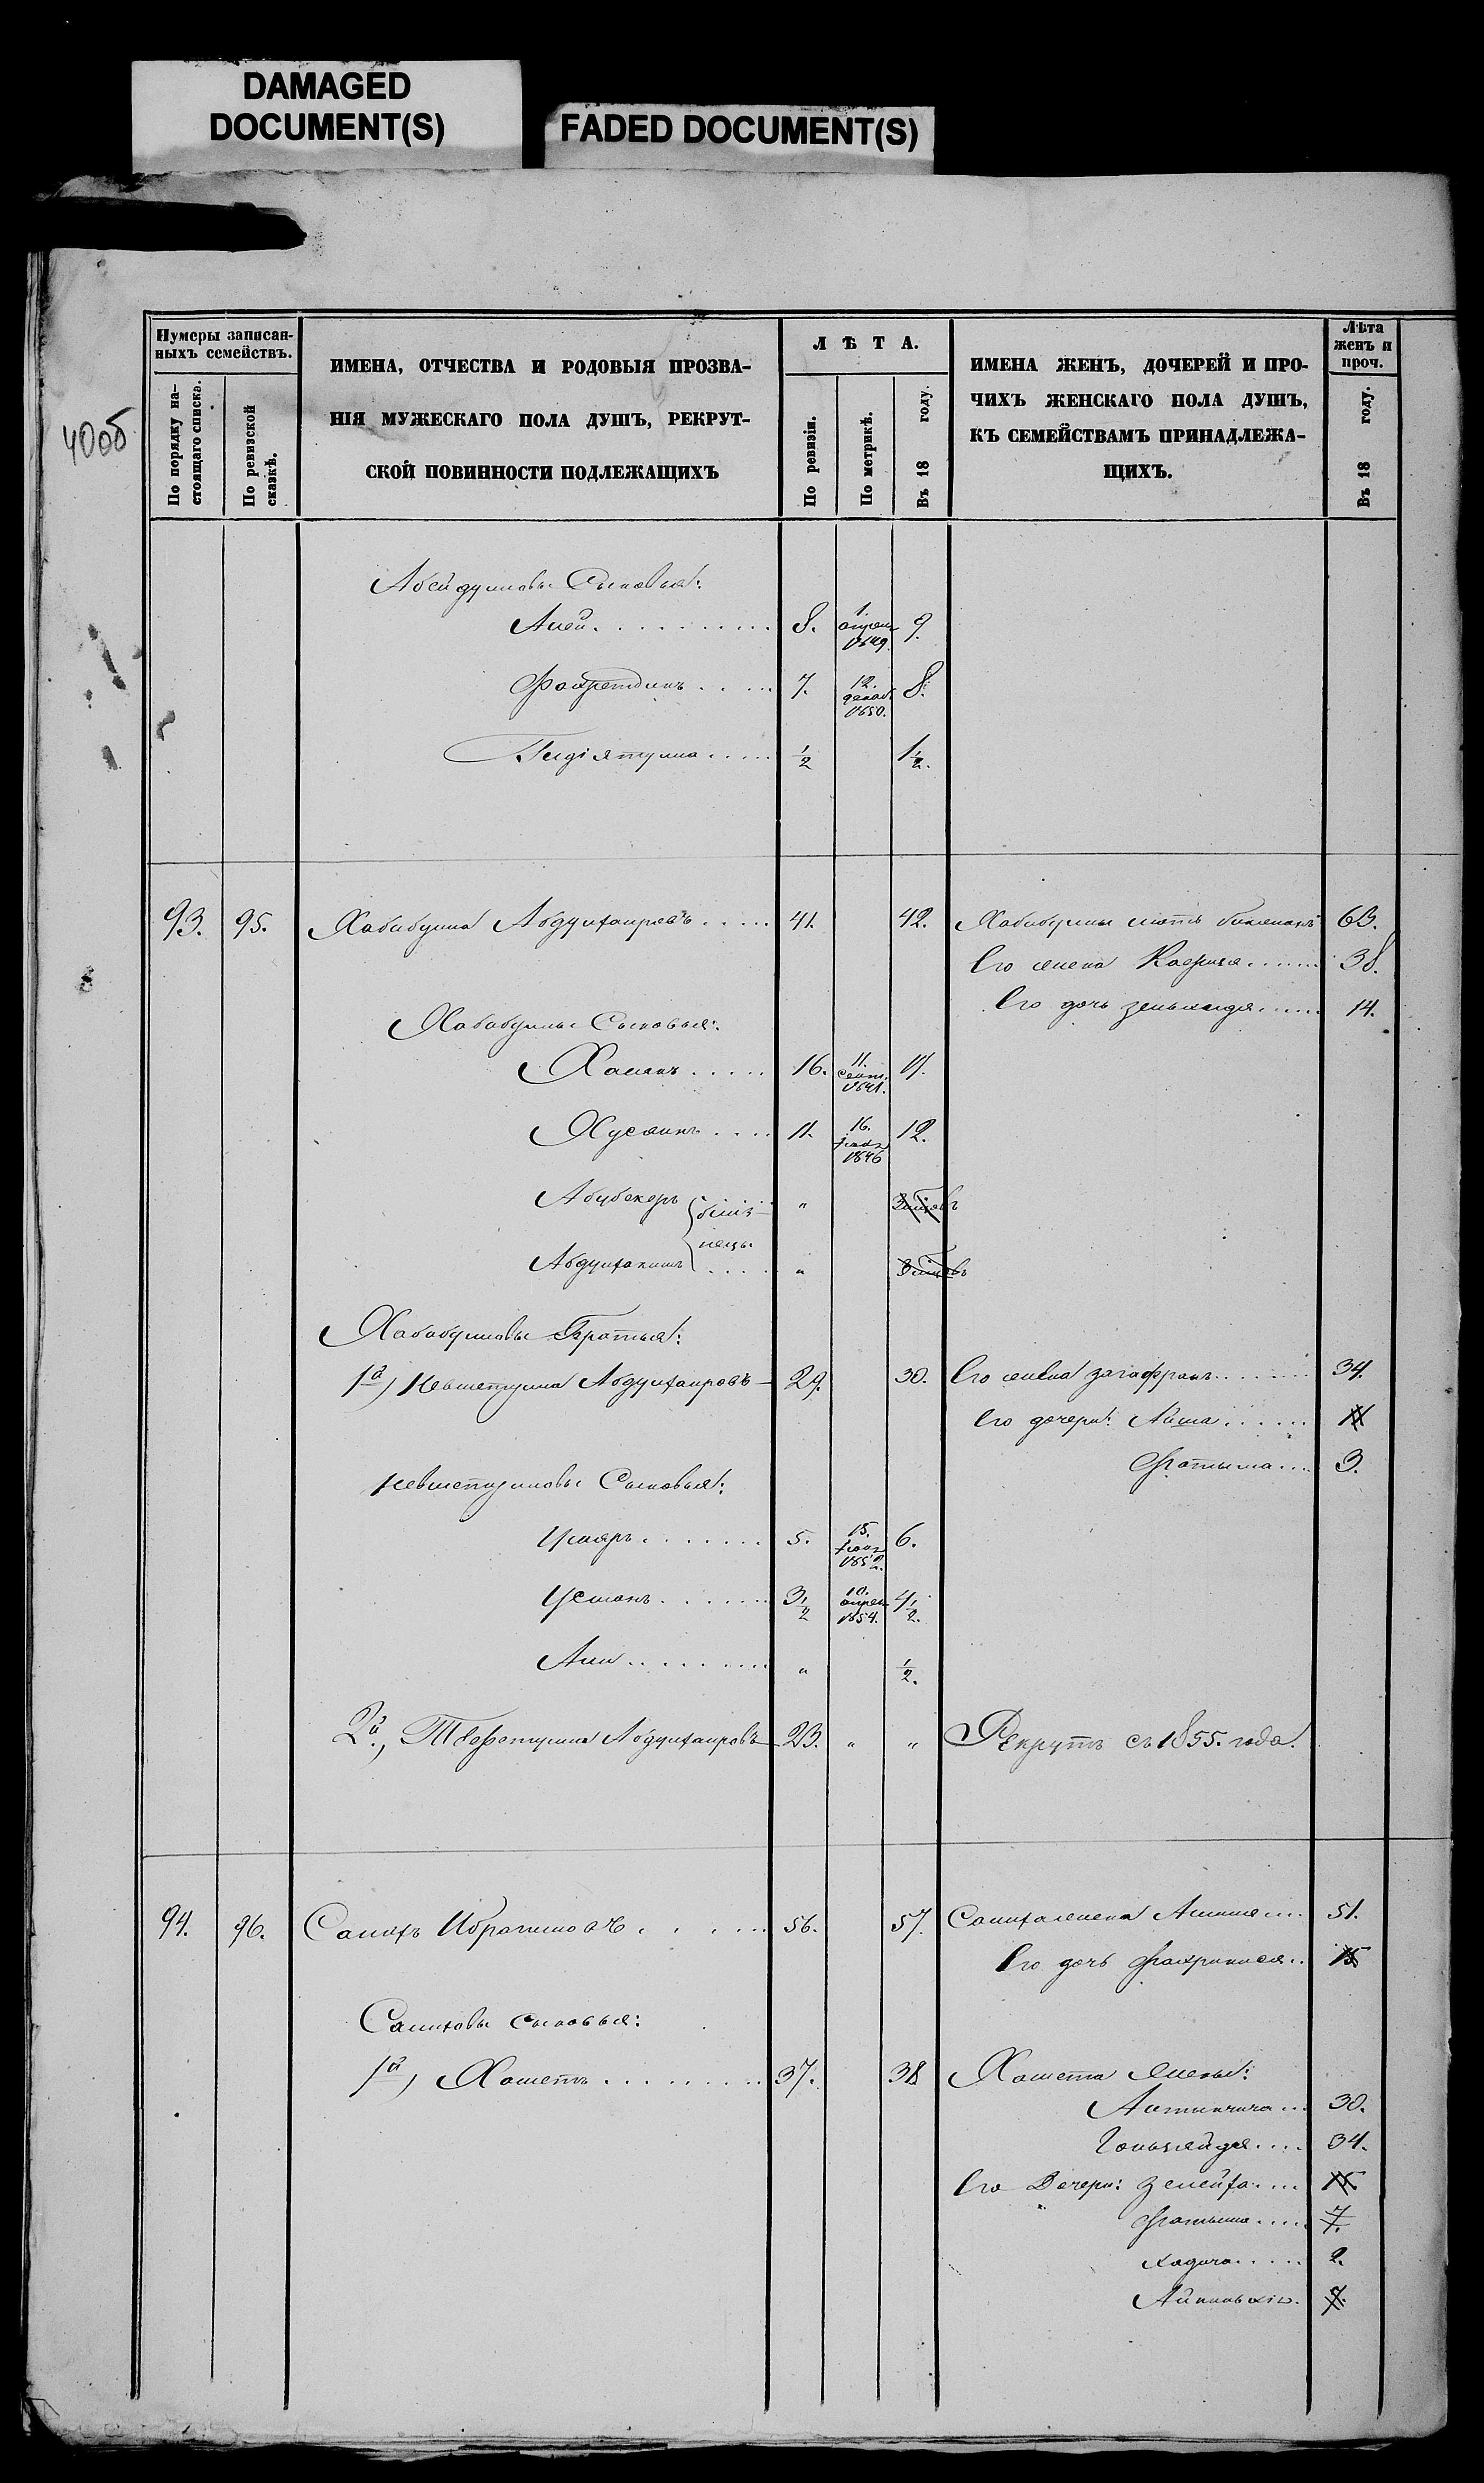 DAMAGED
DOCUMENT(S)
FADED DOCUMENT(S)
40об
Нумеры записан-
ныхъ семействъ.
По порядку на-
стоящаго списка.
По ревизской
сказкѣ.
ИМЕНА, ОТЧЕСТВА И РОДОВЫЯ ПРОЗВА-
НІЯ МУЖЕСКАГО ПОЛА ДУШЪ, РЕКРУТ-
СКОЙ ПОВИННОСТИ ПОДЛЕЖАЩИХЪ
ЛѢТА.
По ревизіи.
По метрикѣ.
Въ 18 году.
ИМЕНА ЖЕНЪ, ДОЧЕРЕЙ И ПРО-
ЧИХЪ ЖЕНСКАГО ПОЛА ДУШЪ,
КЪ СЕМЕЙСТВАМЪ ПРИНАДЛЕЖА-
ЩИХЪ.
Лѣта
женъ и
проч.
Въ 18 году.
Абейдулловы Сыновья:
Алей 8. 1. апрел 1849. 9.
Фахретдинъ 7. 12. декаб. 1850. 8.
Гидіятулла 1/2 1 1/2.
93. 95. Хабибулла Абдулхаировъ 41. 42. Хабибуллы мать 63.
Его жена 38.
Его дочь 14.
Хабибуллы Сыновья:
Хасанъ 16. 11. Сент. 1841. 17.
Хусаинъ 11. 16. 1846 12.
Абубекеръ близ- "
нецы
"
Хабибулловы Братья:
1й) Абдулхаировъ 29. 30. Его жена загафранъ 34.
Его дочери: Айша
Фатыма 3.
Сыновья:
Умяръ 5. 15. 185 6.
Усманъ 3 1/2 10. апрел 1854. 4 1/2.
Али " 1/2.
2й, Абдулхаировъ 23. " " Рекрутъ съ 1855. года.
94. 96. Салихъ Ибрагимовъ 56. 57. Салиха жена 51.
Его дочь 15
Салиховы сыновья:
1й) Хаметъ 37. 38 Хамета жены:
30.
34.
Его Дочери:
Фатыма 7.
Хадича 2.
7.